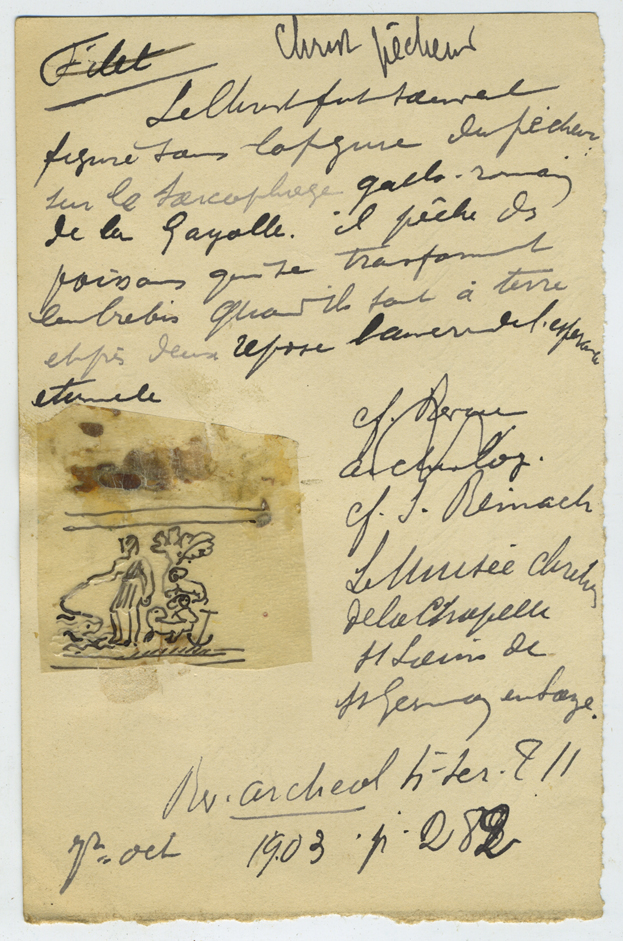 Filet
Christ pêcheur
Le Christ fut souvent
figuré sous la figure du pêcheur
sur le sarcophage gallo-romain
de la Gayolle. il pêche des
poissons qui se transforment
en brebis quand ils sont à terre
et près deux repose l'ancre de l'espérance
éternelle
cf. Revue
archeolog.
cf. S. Reinach
Le Musée chretien
de la Chapelle
St Louis de
St Germain en Laye.
Rev. archeol 4e Ser. T II
7bre oct 1903 p. 282